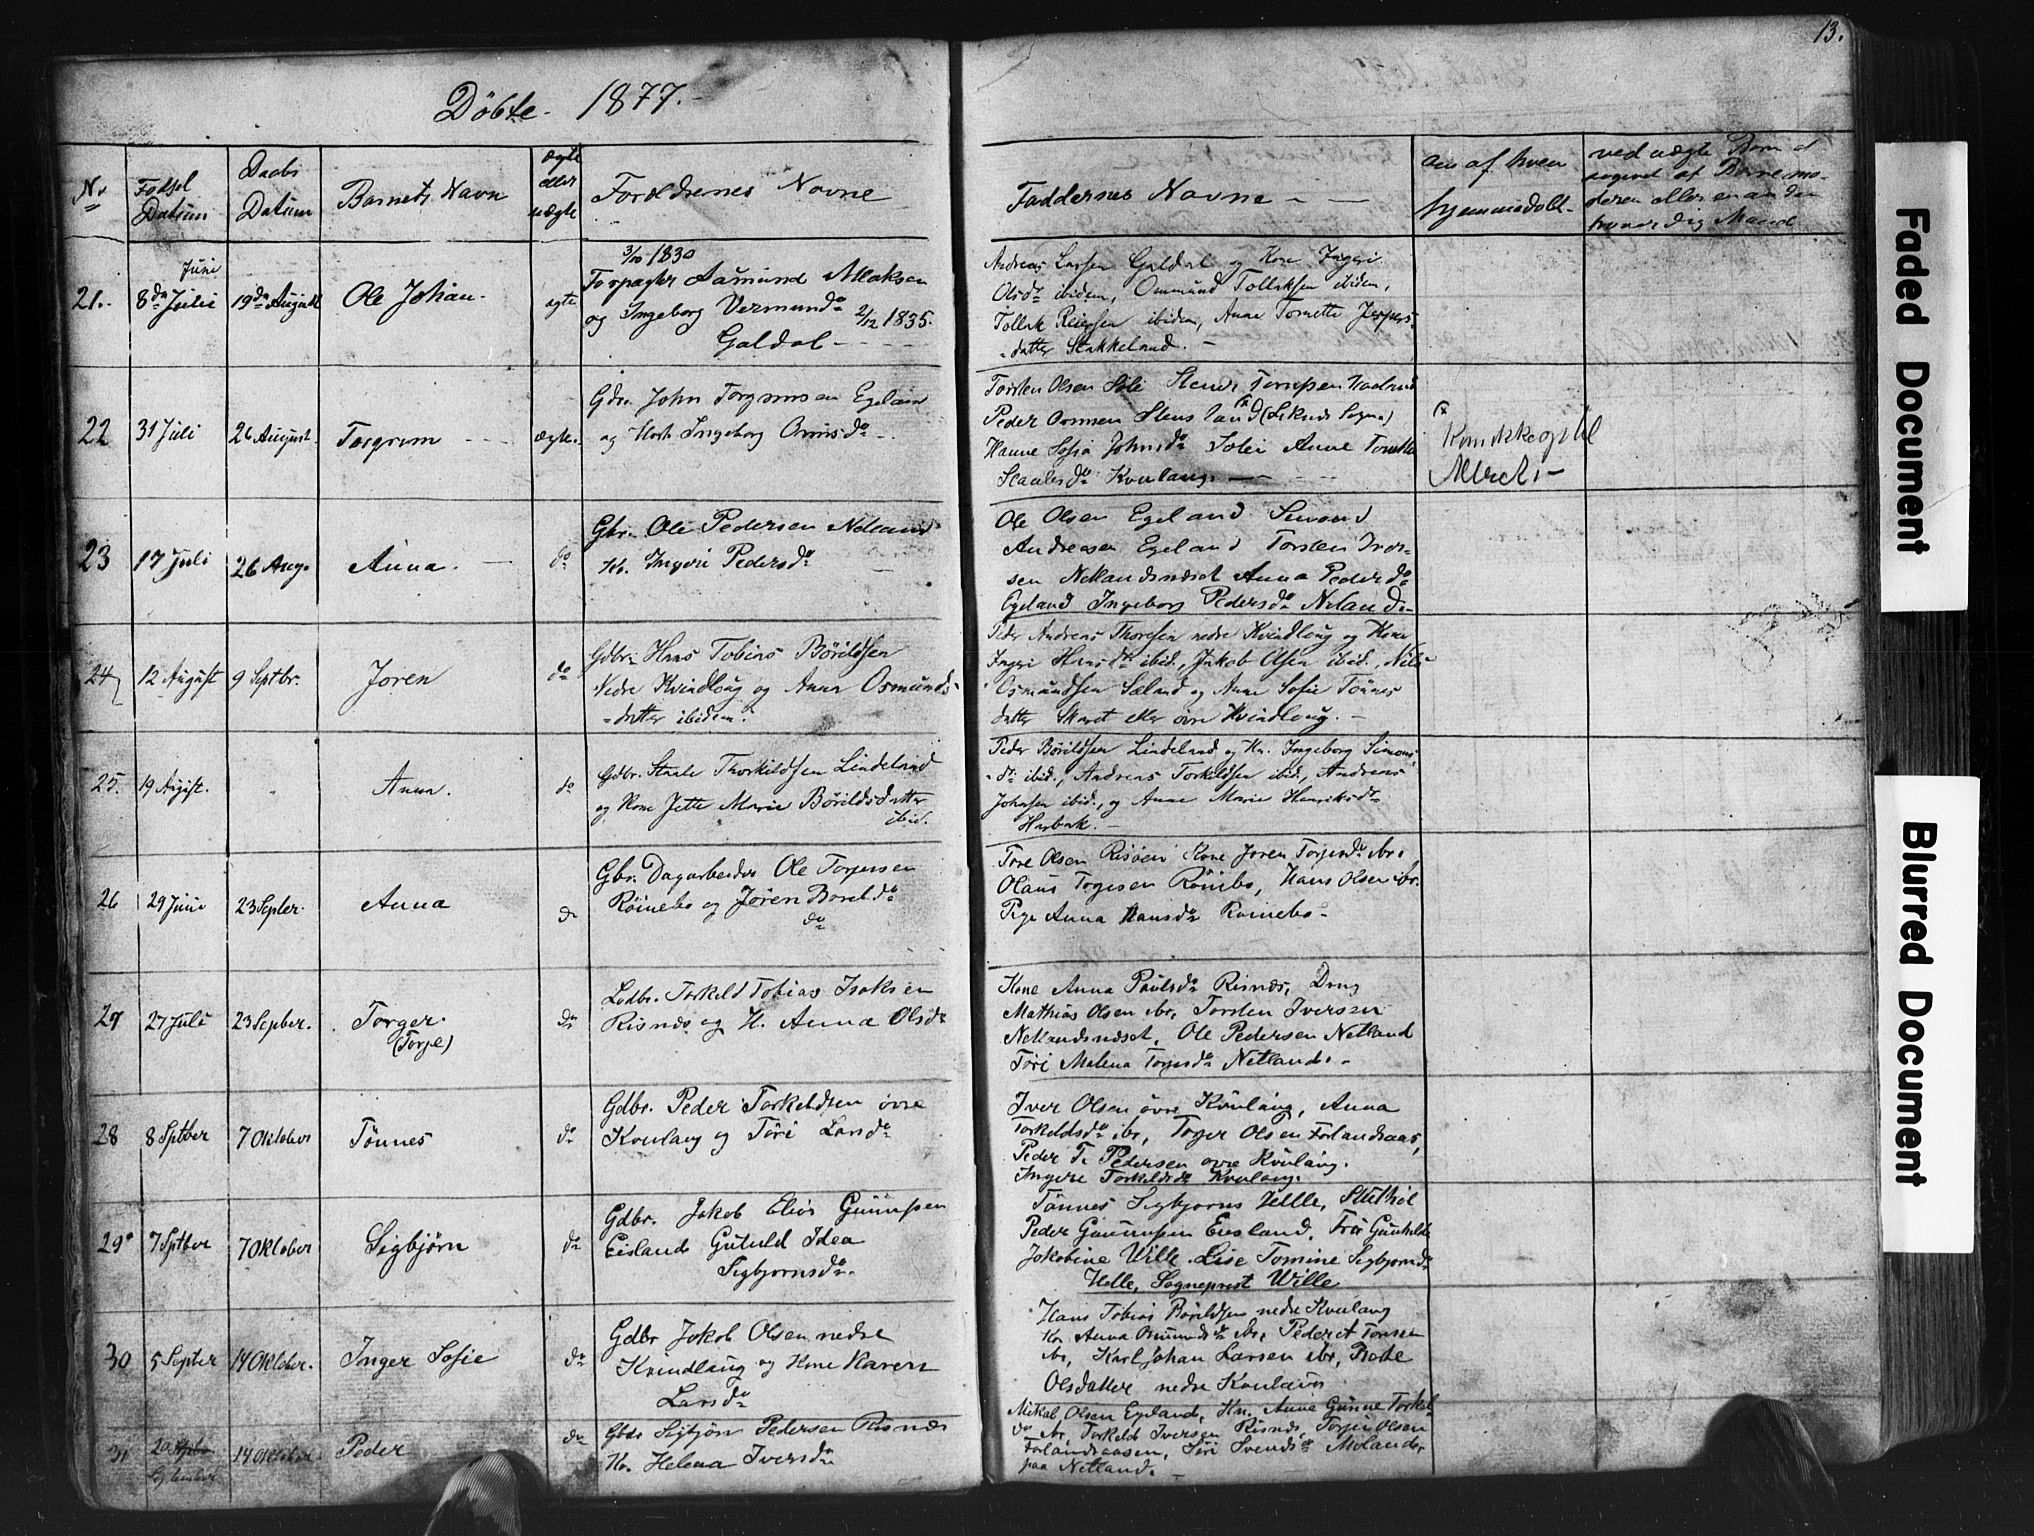 13.
Döbte 1877.
No
Fødsel Datum
Daabs Datum
Barnets Navn
ægte eller uægte
Forældrenes Navne
Faddernes Navne
om af hvem hjemmedøbt
ved uægte Børn
angivet af Barnemo-
deren eller en anden
Mand
21.
Juni
8de Juli
19de August
Ole Johan
ægte
3/10 1830
Forpagter Aasmund Maksen
og Ingeborg Vermundsdr 2/12 1835.
Galdal
Andreas Larsen Galdal og Kone Ingeri
Olsdr ibidem, Ommund Tollaksen ibidem,
Tollak Reiersen ibidem, Anne Tomette Jespers-
datter Stakkeland.
22
31 Juli
26 August
Torgrim
ægte
Gdr. John Torgrimsen Egeland
og Ingeborg Omisdr
Torsten Olsen
Peder Osmsen
Hanne Sofia Johnsdr Solei Anne Tomette
Staalesdr Kvulaug
23
17 Juli
26 Aug.
Anna
do
Gbr. Ole Pedersen Netland
Ko. Ingeri Pedersdr
Ole Olsen Egeland
Andreasen Egeland Torsten Iver-
sen Netlandsnæset Anna Pedersdr
Egeland Ingeborg Pedersdr Netland
24
12 August
9 Septbr.
Joren
do
Gdbr. Hans Tobias Börildsen
Nedre Kvindloug og Anna Osmunds-
datter ibidem.
Peder Andreas Thoresen nedre Kvindloug og Kone
Ingeri Hansdr ibid., Jakob Olsen ibid., Nils
Osmundsen Sæland og Anne Sofie Tönnes
datter Skaret eller øvre Kvindloug.
25.
19 August.
"
Anna.
do
Gdbr. Staale Thorkildsen Lindeland
og Kone Jette Marie Börildsdatter
ibid.
Peder Börildsen Lindeland og Kn. Ingeborg Simons-
dr ibid., Andreas Torkildsen ibid., Andreas
Johnsen ibid., og Anne Marie Henriksdr
26
29 Juni
23 Septer.
Anna
do
Gbr. Dagarbeider Ole Torjersen
Röinebo og Jören Borildsdr
do
Tore Olsen Risöen Kone Joren Torjesdr ibr.
Olaus Torjesen Röinebo, Hans Olsen ibr.
Pige Anna Hansdr Roinebo
27
27 Juli
23 Septber.
Torger.
(Torje)
do
Torkeld Tobias Isaksen
Risnæs og K. Anna Olsdr
Kone Anna Paulsdr Risnæs, Dreng
Mathias Olsen ibr, Torsten Iversen
Netlandsnæset, Ole Pedersen Netland
Töri Malena Torjesdr Netland.
28
8 Sptber
7 Oktober
Tönnes
do
Gdbr. Peder Torkeldsen övre
Kvulaug og Töri Larsdr
Iver Olsen övre Kvulaug, Anna
Torkeldsdr ibr, Torger Olsen Forlandsaas,
Peder T. Pedersen ovre Kvulaug.
Ingere Torkeldsdr Kvulaug.
29
7 Sptber
7 Oktober
Sigbjörn
do
Gdbr. Jakob Elias
Eisland Idea
Sigbjornsdr.
Tönnes Sigbjorns Helle,
Peder Eiesland,
Jakobine Wille Lise Tomine Sigbjornsdr
Helle, Sogneprest Wille
30
5 Septer
14 Oktober.
Inger Sofie
do
Gdbr Jakob Olsen nedre
Kvindlaug og Kone Karen
Larsdr
Hans Tobias Börildsen nedre Kvulaug
Ko. Anna Osmundsdr ibr., Peder A Toresen
ibr, Karl Johan Larsen ibr,
Olsdatter nedre Kvulaug
31
20
September
14 Oktober
Peder
do
Gbdr Sigbjörn Pedersen Risnæs
Ko. Helena Iversdr
Mikal Olsen Egeland, Kn. Anne Gunne Torkel-
dr ibr, Torkeld Iversen Risnæs, Torjer Olsen
Forlandsaasen, Siri Svendsdr Moland
paa Netland.
Faded Document
Blurred Document